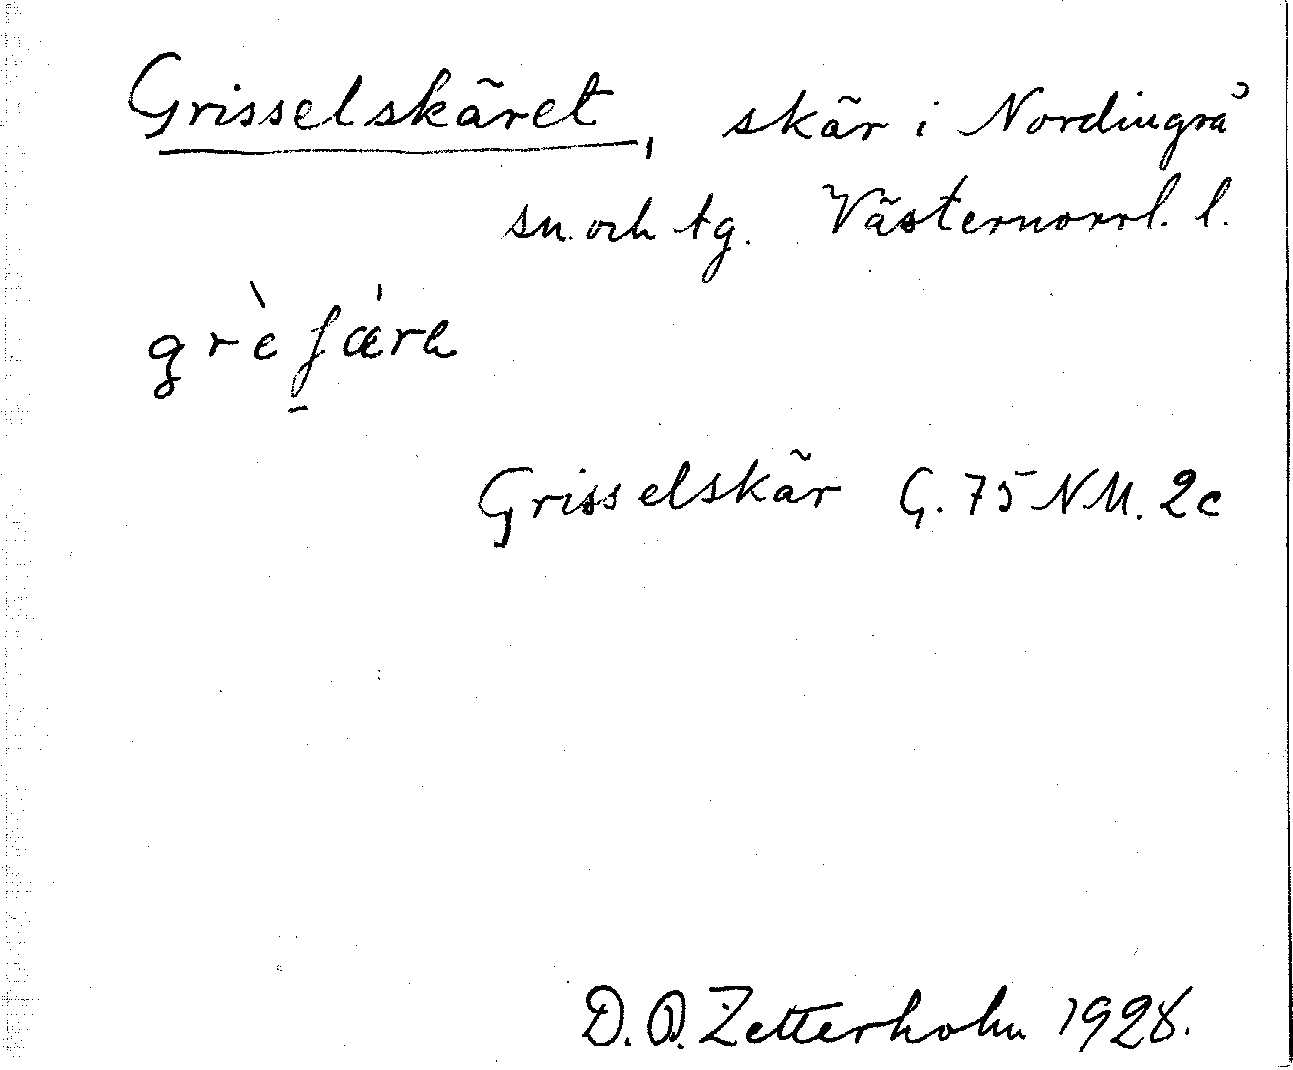 Grisselskäret, skär i Nordingrå
sn. och tg. Västernorrl. l.
grèʃæ̀ra
Grisselskär G. 75 NM. 2c
D. O. Zetterholm 1928.